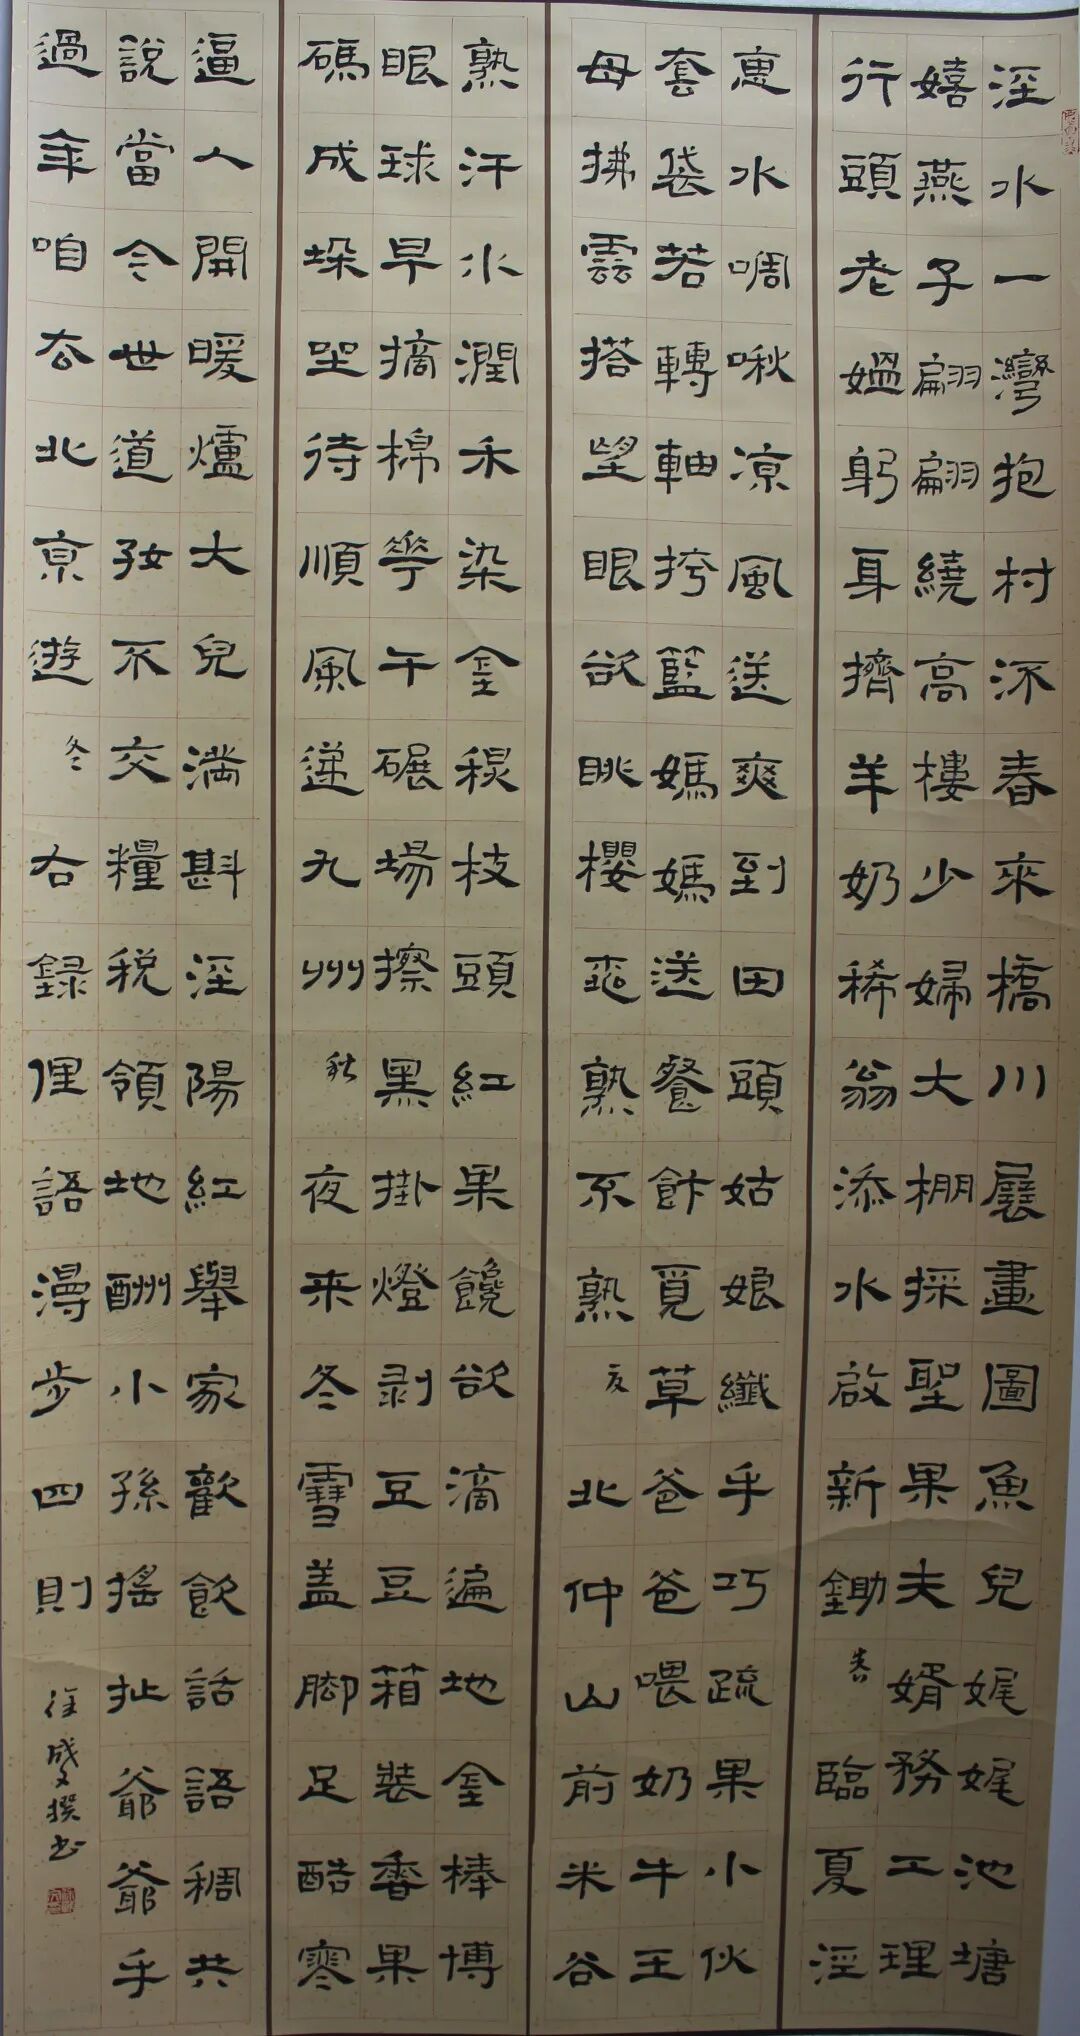 涇水一灣抱村流春來橋川展畫圖魚兒娓娓池塘
嬉燕子翩翩繞高樓少婦大棚採聖果夫婿務工理
行頭老媼躬耳擠羊奶稀翁添水啟新鋤 春 臨夏涇
惠水啁啾凉風送爽到田頭姑娘纖手巧疏果小伙
套袋若轉軸挎籃媽媽送餐飰覓草爸爸喂奶牛王
母拂雲搭望眼欲眺櫻桃熟不熟 夏 北仲山前米谷
熟汗水潤禾染金穗枝頭紅果饞欲滴遍地金棒博
眼球早摘棉花午碾場擦黑掛燈剥豆豆箱裝香果
碼成垛坐待順風遞九州 秋 夜来冬雪盖脚足酷寒
逼人開暖爐大兒滿斟涇陽紅舉家歡飲話語稠共
說當今世道好不交糧稅領地酬小孫搖扯爺爺手
過年咱去北京遊 冬 右録俚語漫步四則
成文撰书